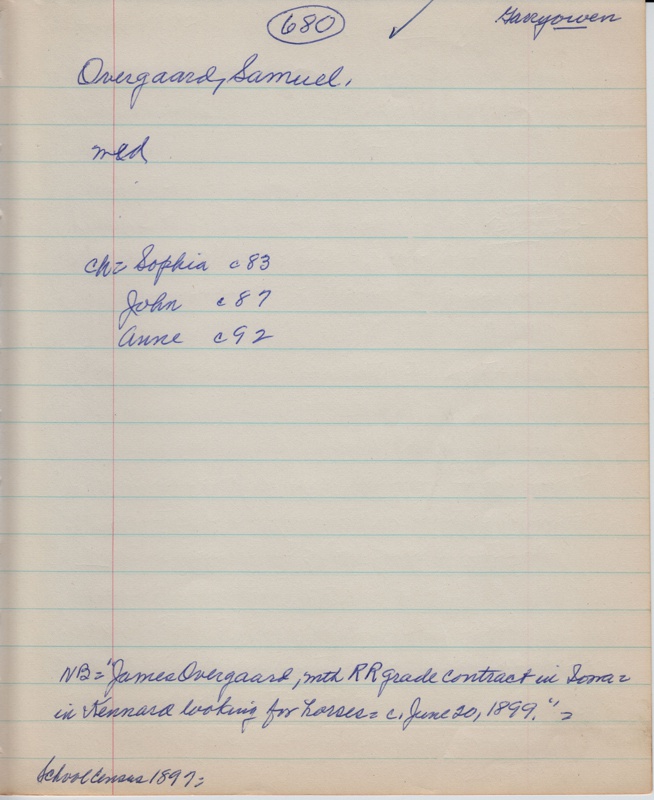 680 Garryowen
Overgaard, Samuel.
med
ch= Sophia c83
John c87
Anne c92
NB= "James Overgaard, mth RR grade contract in Iowa=
in Kennard looking for horses= c. June 20, 1899."=
School Census 1897=